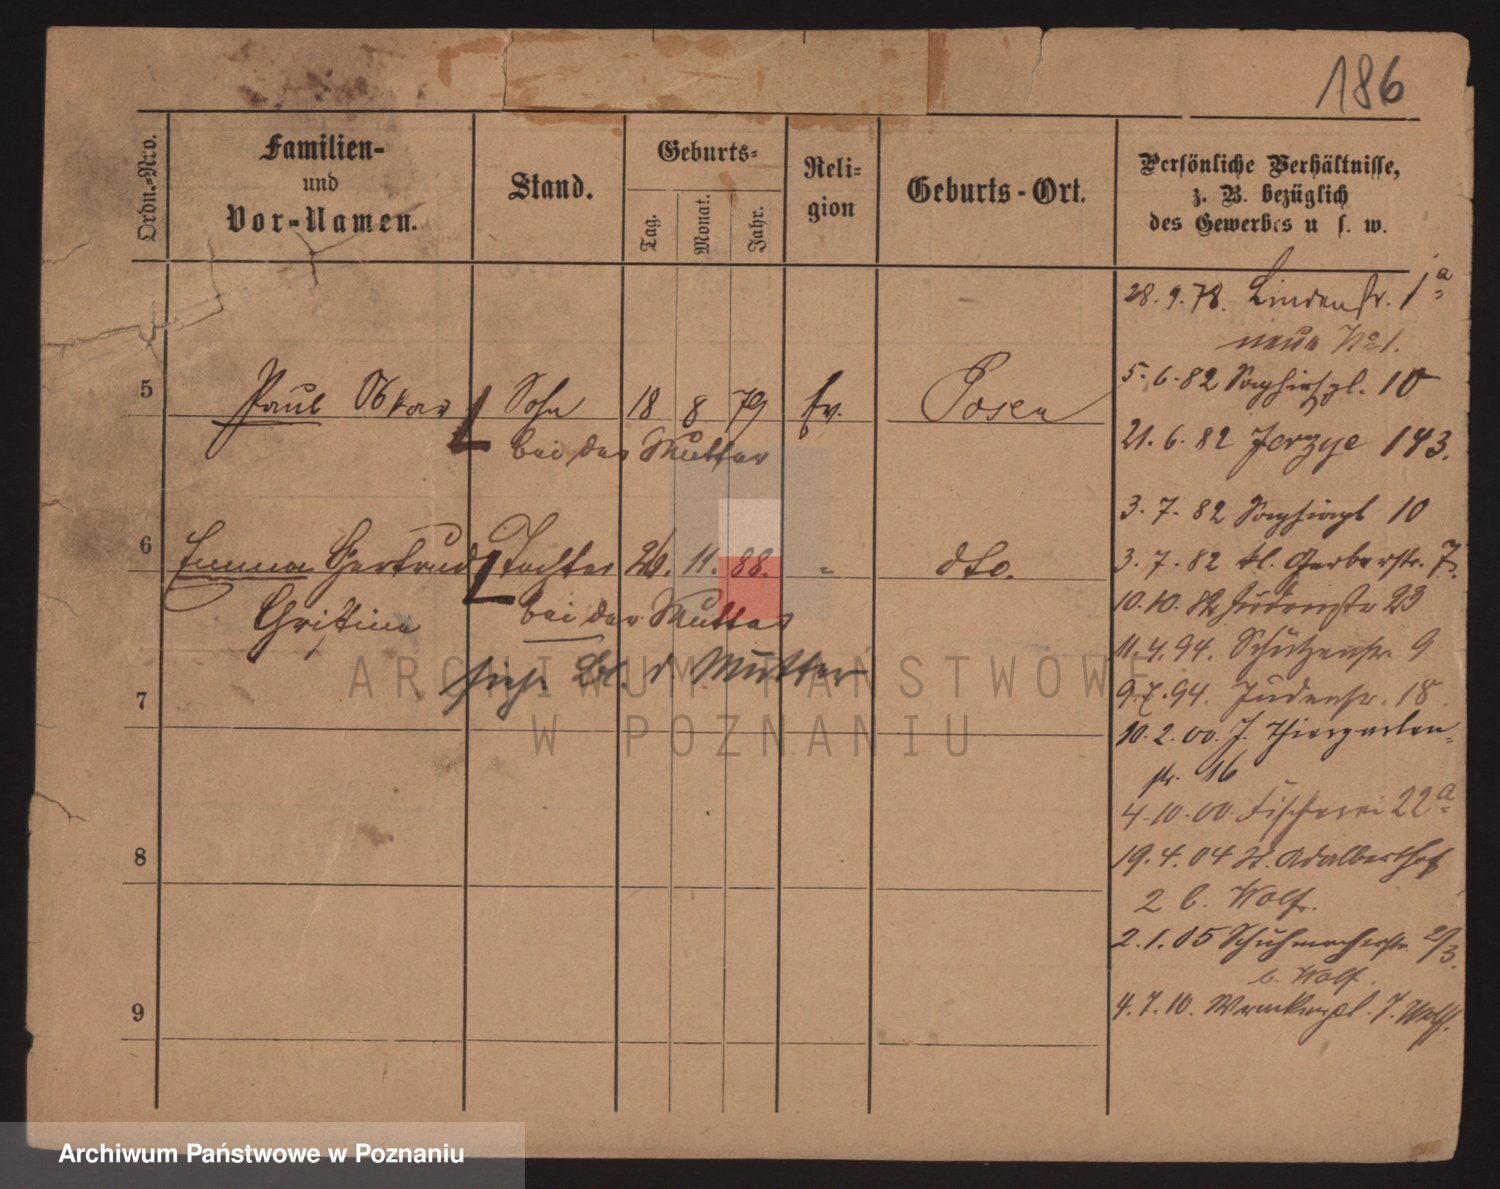 186
Ordn.-Nro.
Familien-
und
Vor-Namen.
Stand.
Geburts-
Tag.
Monat.
Jahr.
Reli-
gion
Geburts-Ort.
Persönliche Verhältnisse,
z. B. bezüglich
des Gewerbes u s. w.
28. 9. 78. Lindenstr. 1a
neue No 1.
5 Paul Oskar Sohn 18 8 79 Ev. Posen
bei der Mutter
5. 6. 82 Saphiehpl. 10
21. 6. 82 Jerzyce 143.
3. 7. 82 Saphiapl 10
6 Emma Gertrud Tochter 26. 11. 88. " dto.
Christine bei der Mutter
siehe Bl. d Mutter
3. 7. 82 kl. Gerberstr. 7.
10. 10. 82 Judenstr 23
11. 4. 94. Schützenstr 9
9. 7. 94. Judenstr. 18.
7
10. 2. 00. J. Thiergarten-
str. 16
4. 10. 00. Fischerei 22a
8
19. 4. 04 St. Adalberthof
2 b. Wolf.
2. 1. 05 Schuhmacherstr. 2/3.
b. Wolf.
9
4. 7. 10. 7. Wolf.
ARCHIWUM PAŃSTWOWE
W POZNANIU
Archiwum Państwowe w Poznaniu